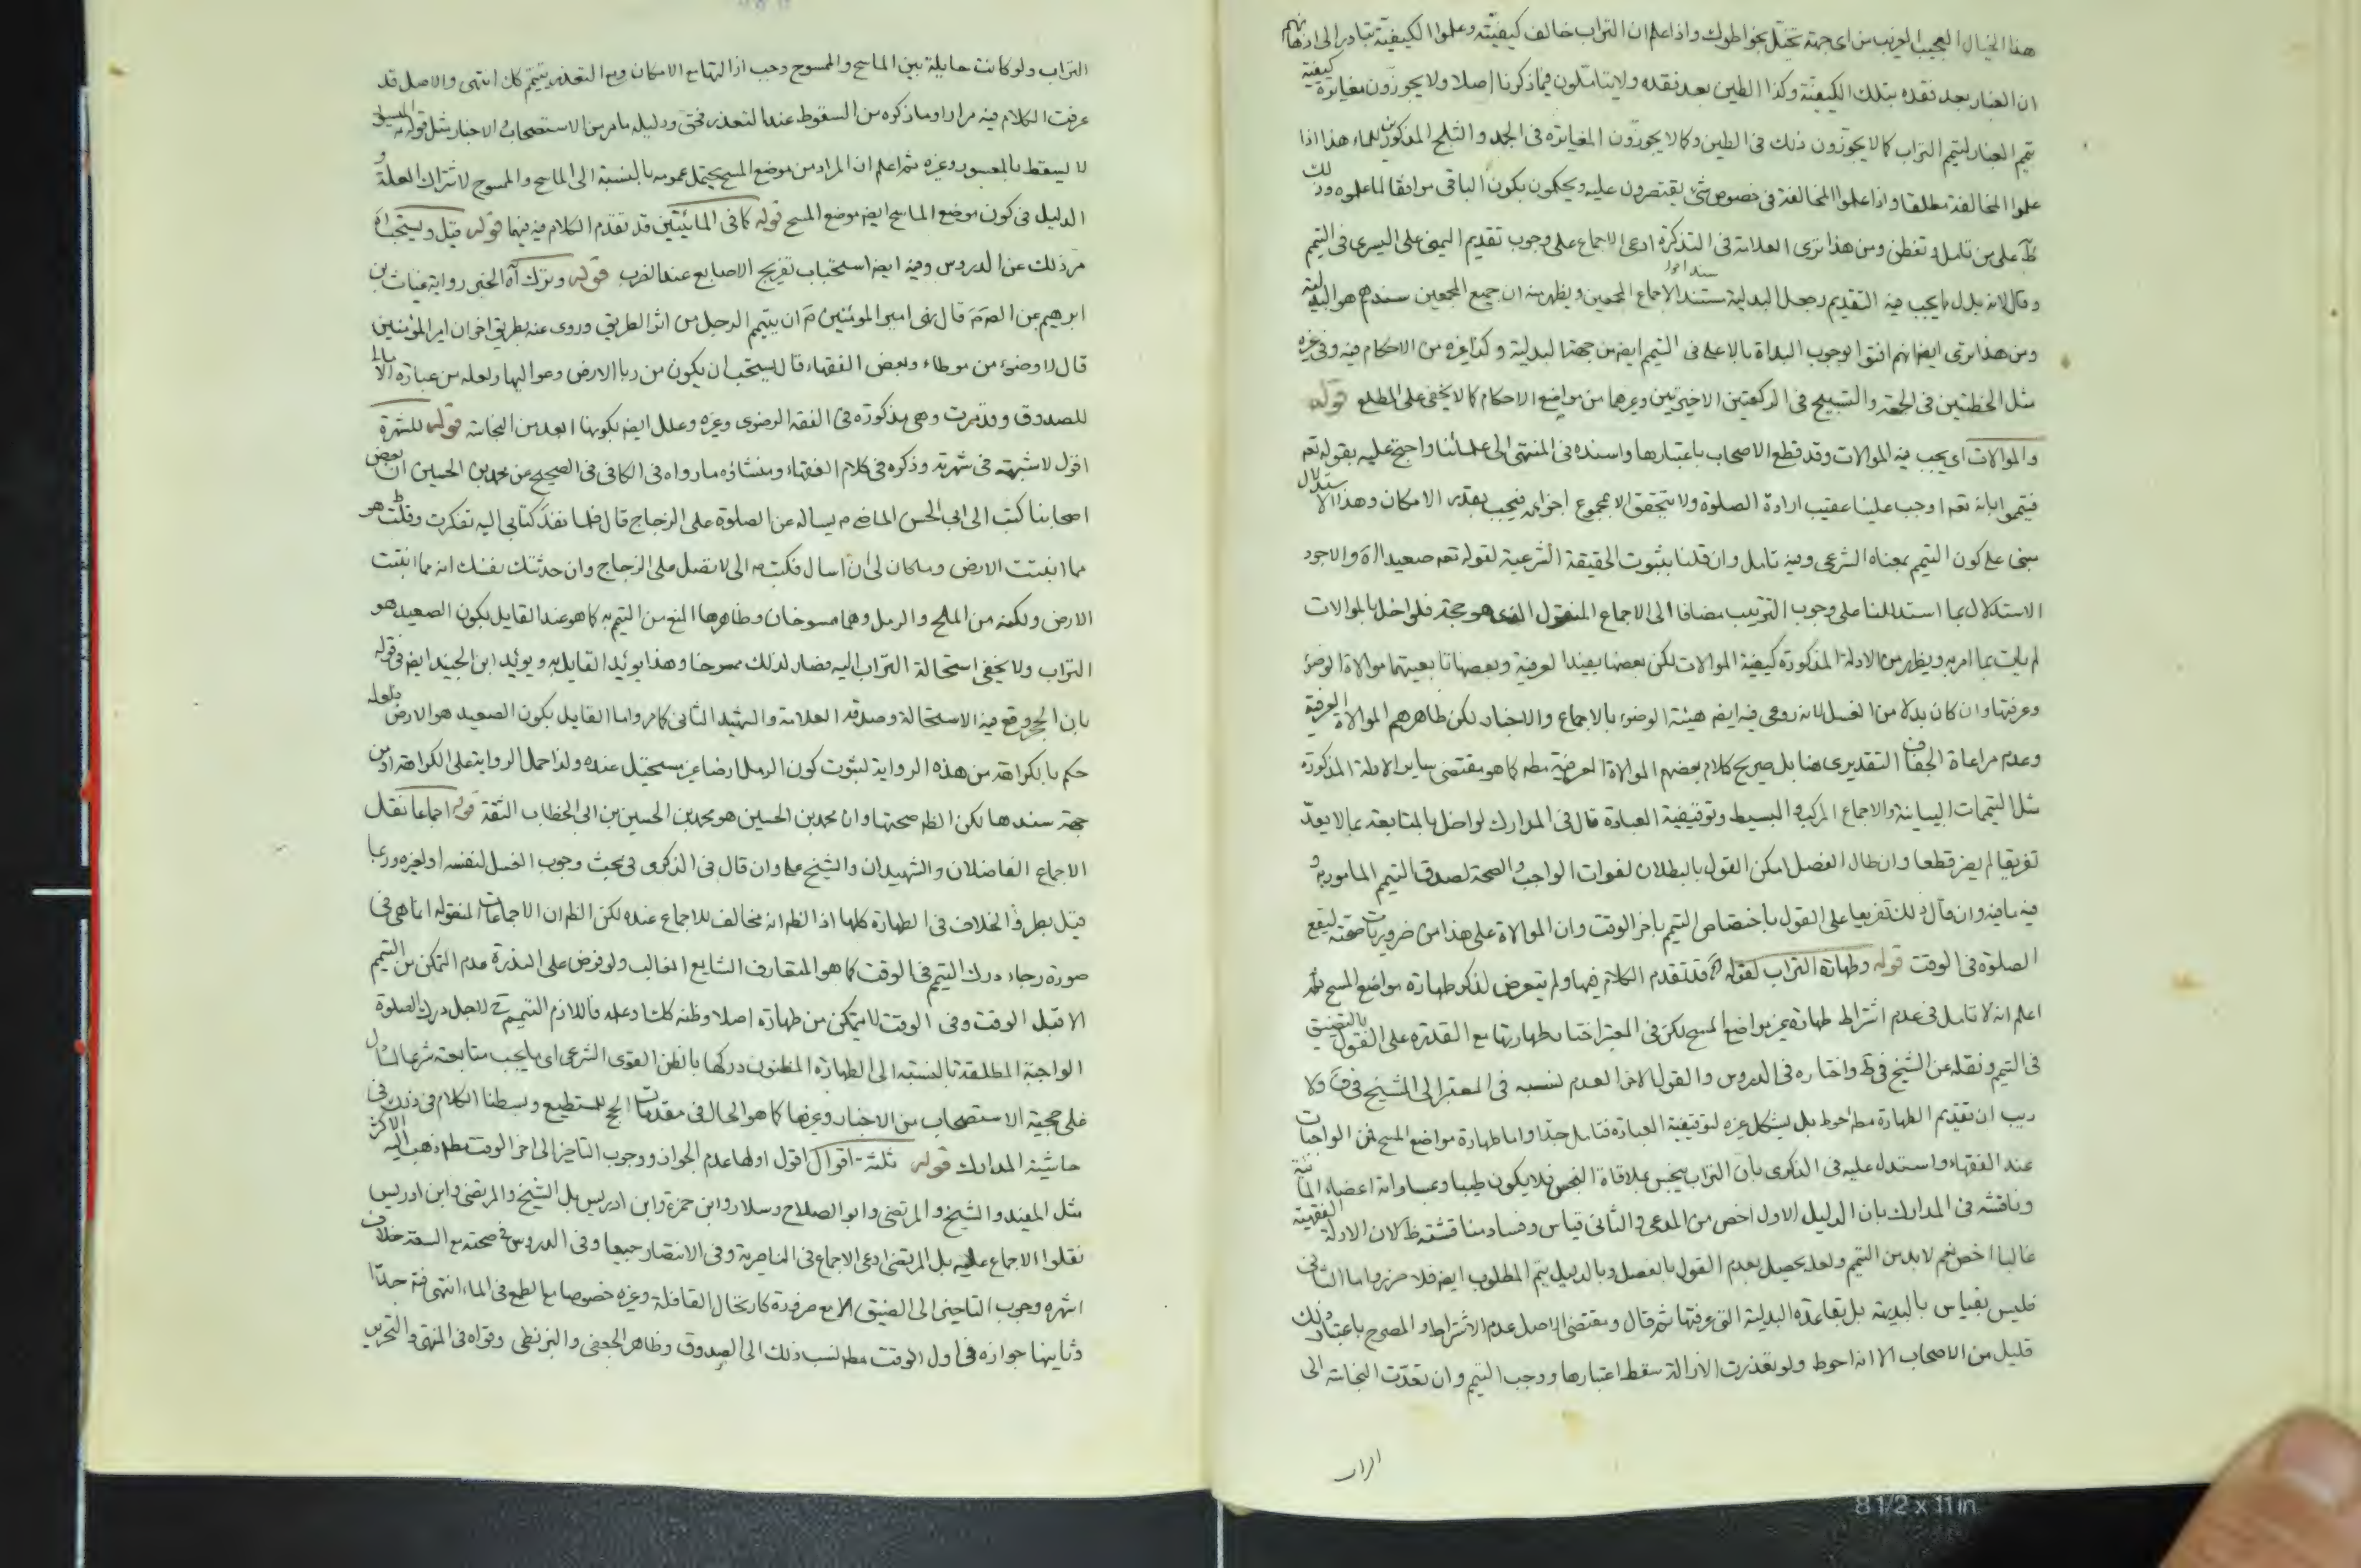 هذا الخيال العجيب الغريب من اى جهة تخيل بخواطرك واذا علم ان التراب خالف كيفيته وعلموا الكيفية تبادر الى اذهانهم
ان الغبار بعد فقده بتلك الكيفية وكذا الطين بعد فقده ولا يتاملون فيما ذكرنا اصلا ولا يجوزون مغايرة كيفية
تيمم الغبار لتيمم التراب كما لا يجوزون ذلك فى الطين وكما لا يجوزون المغايرة فى الجمد والثلج المذكورين للماء هذا اذا
علموا المخالفة مطلقا واذا علموا المخالفة فى خصوص شئ يقتصرون عليه ويحكمون بكون الباقى موافقا لما علموه وذلك
ظ على من تامل وتفطن ومن هذا ترى العلامة فى التذكرة ادعى الاجماع على وجوب تقديم اليمنى على اليسرى فى التيمم
وقال لانه بدل ما يجب فيه التقديم وجعل البدلية مستند الاجماع المجمعين ويظهر منه ان جميع المجمعين سندهم هو البدلية
ومن هذا ترى ايضا انهم افتوا بوجوب البداة بالاعلى فى التيمم ايضا من جهة البدلية وكذا غيره من الاحكام فيه وفى غيره
مثل الخطبتين فى الجمعة والتسبيح فى الركعتين الاخيرتين وغيرهما من مواضع الاحكام كما لا يخفى على المطلع قوله
والموالات اى يجب فيه الموالات وقد قطع الاصحاب باعتبارها واسنده فى المنتهى الى علمائنا واحتج عليه بقوله تعه
فتيمموا بانه تعه اوجب علينا عقيب ارادة الصلوة ولا يتحقق الا بمجموع اجزائه فيجب بقدر الامكان وهذا الاستدلال
مبنى على كون التيمم بمعناه الشرعى وفيه تامل وان قلنا بثبوت الحقيقة الشرعية لقوله تعه صعيدا اه والاجود
الاستدلال بما استدللنا على وجوب الترتيب مضافا الى الاجماع المنقول الذى هو حجة فلو اخل بالموالات
لم يات بما امر به ويظهر من الادلة المذكورة كيفية الموالات لكن بعضها يفيد العرفية وبعضها تابعيتها موالاة الوضوء
وعرفتها وان كان بدلا من الغسل لانه روعى فيه ايضا هيئة الوضوء بالاجماع والاخبار لكن ظاهرهم الموالاة العرفية
وعدم مراعاة الجفاف التقديرى هنا بل صريح كلام بعضهم الموالاة العرفية مطه كما هو مقتضى ساير الادلة المذكورة
مثل التيممات البيانية والاجماع المركب والبسيط وتوقيفية العبادة قال فى المدارك لو اخل بالمتابعة بما لا يعد
تفريقا لم يضر قطعا وان طال الفصل امكن القول بالبطلان لفوات الواجب والصحة لصدق التيمم المامور به و
فيه ما فيه وان قال ذلك تفريعا على القول باختصاص التيمم باخر الوقت وان الموالاة على هذا من ضروريات صحته ليقع
الصلوة فى الوقت قوله وطهارة التراب لقوله اه قد تقدم الكلام فيها ولم يتعرض لذكر طهارة مواضع المسح ثم
اعلم انه لا تامل فى عدم اشتراط طهارة غير مواضع المسح لكن فى المعتبر احتمل طهارتها مع القدرة على القول بالتضييق
فى التيمم ونقله عن الشيخ فى ط واختاره فى الدروس والقول الاخر العدم نسبه فى المعتبر الى الشيخ فى ف ولا
ريب ان تقديم الطهارة مطه احوط بل يشكل غيره لتوقيفية العبادة فتامل جدا واما طهارة مواضع المسح فمن الواجبات
عند الفقهاء واستدل عليه فى الذكرى بان التراب ينجس بملاقاة النجس فلا يكون طيبا وبمساواته اعضاء المائية
وناقشه فى المدارك بان الدليل الاول اخص من المدعى والثانى قياس وفساد مناقشته ظ لان الادلة الفقهية
غالبا اخص نعم لا بد من التتميم ولعله يحصل بعدم القول بالفصل وبالدليل يتم المطلوب ايضا فلا ضرر واما الثانى
فليس بقياس بالبديهة بل بقاعدة البدلية التى عرفتها ثم قال ومقتضى الاصل عدم الاشتراط والمصرح باعتبار ذلك
قليل من الاصحاب الا انه احوط ولو تعذرت الازالة سقط اعتبارها ووجب التيمم وان تعدت النجاسة الى
التراب ولو كانت حايلة بين الماسح والممسوح وجب ازالتها مع الامكان ومع التعذر يتيمم كك انتهى والاصل قد
عرفت الكلام فيه مرارا وما ذكره من السقوط عند التعذر فحق ودليله ما مر من الاستصحاب والاخبار مثل قوله الميسور
لا يسقط بالمعسور وغيره ثم اعلم ان المراد من موضع المسح يحتمل عمومه بالنسبة الى الماسح والممسوح لاشتراك العلة و
الدليل فى كون موضع الماسح ايضا موضع المسح قوله كما فى المائيتين قد تقدم الكلام فيه فيهما قوله قيل ويستحب اه
مر ذلك عن الدروس وفيه ايضا استحباب تفريج الاصابع عند الضرب قوله وترك اه الخبر رواية غياث بن
ابرهيم عن الصم قال نهى امير المؤمنين م ان يتيمم الرجل من اثر الطريق وروى عنه بطريق اخر ان امير المؤمنين
قال لا وضوء من موطاء وبعض الفقهاء قال يستحب ان يكون من ربا الارض وعواليها ولعله من عبارة الامالى
للصدوق وقد مرت وهى مذكورة فى الفقه الرضوى وغيره وعلل ايضا بكونها ابعد من النجاسة قوله للشهرة
اقول لا شبهة فى شهرته وذكره فى كلام الفقهاء ومنشاؤه ما رواه فى الكافى فى الصحيح عن محمد بن الحسين ان بعض
اصحابنا كتب الى ابى الحسن الماضى م يساله عن الصلوة على الزجاج قال فلما نفذ كتابى اليه تفكرت وقلت هو
مما انبتت الارض وما كان لى ان اسال فكتب م الى لا تصل على الزجاج وان حدثتك نفسك انه مما انبتت
الارض ولكنه من الملح والرمل وهما ممسوخان وظاهرها المنع من التيمم به كما هو عند القايل بكون الصعيد هو
التراب ولا يخفى استحالة التراب اليه فصار لذلك ممسوخا وهذا يؤيد القايل به ويؤيد ابن الجنيد ايضا فى قوله
بان الحجر وقع فيه الاستحالة وصدقه العلامة والشهيد الثانى كما مر واما القايل بكون الصعيد هو الارض فلعله
حكم بالكراهة من هذه الرواية لثبوت كون الرمل ارضا غير مستحيل عنده ولذا حمل الرواية على الكراهة او من
جهة سندها لكن الظ صحتها وان محمد بن الحسين هو محمد بن الحسين بن ابى الخطاب الثقة قوله اجماعا نقل
الاجماع الفاضلان والشهيدان والشيخ على وان قال فى الذكرى فى بحث وجوب الغسل لنفسه او لغيره وربما
قيل بطرو الخلاف فى الطهارة كلها اذ الظ انه مخالف للاجماع عنده لكن الظ ان الاجماعات المنقولة انما هى فى
صورة رجاء درك التيمم فى الوقت كما هو المتعارف الشايع الغالب ولو فرض على الندرة عدم التمكن من التيمم
الا قبل الوقت وفى الوقت لا يتمكن من طهارة اصلا وظنه كك او علمه فاللازم التيمم ح لاجل درك الصلوة
الواجبة المطلقة بالنسبة الى الطهارة المظنون دركها بالظن القوى الشرعى اى ما يجب متابعته شرعا لما دل
على حجية الاستصحاب من الاخبار وغيرها كما هو الحال فى مقدمات الحج للمستطيع وبسطنا الكلام فى ذلك فى
حاشية المدارك قوله ثلثة اقوال اقول اولها عدم الجواز ووجوب التاخير الى اخر الوقت مطه ذهب اليه الاكثر
مثل المفيد والشيخ والمرتضى وابو الصلاح وسلار وابن حمزة وابن ادريس بل الشيخ والمرتضى وابن ادريس
نقلوا الاجماع عليه بل المرتضى ادعى الاجماع فى الناصرية وفى الانتصار جميعا وفى الدروس فى صحته مع السعة خلاف
اشهره وجوب التاخير الى الضيق الا مع ضرورة كارتحال القافلة وغيره خصوصا مع الطمع فى الماء انتهى فت جدا
وثانيها جوازه فى اول الوقت مطه نسب ذلك الى الصدوق وظاهر الجعفى والبزنطى وقواه فى المنتهى والتحرير
8 1/2 x 11 in.